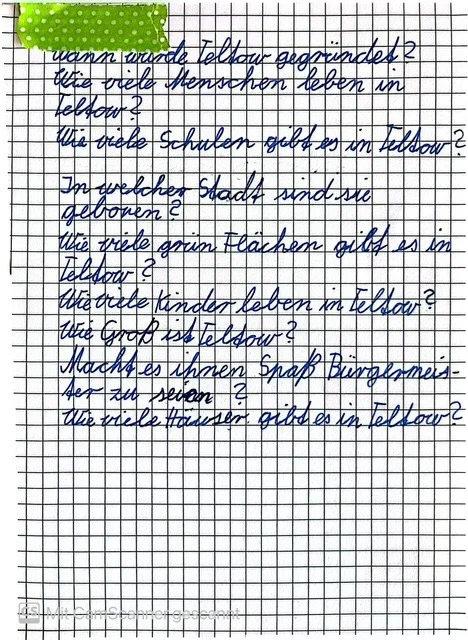 wann wurde Teltow gegründet?
Wie viele Menschen leben in
Teltow?
Wie viele Schulen gibt es in Teltow?
In welcher Stadt sind sie
geboren?
Wie viele grün Flächen gibt es in
Teltow?
Wie viele Kinder leben in Teltow?
Wie Groß ist Teltow?
Macht es ihnen Spaß Bürgermeis-
ter zu seien ?
Wie viele Häuser gibt es in Teltow?
CS Mit CamScanner gescannt